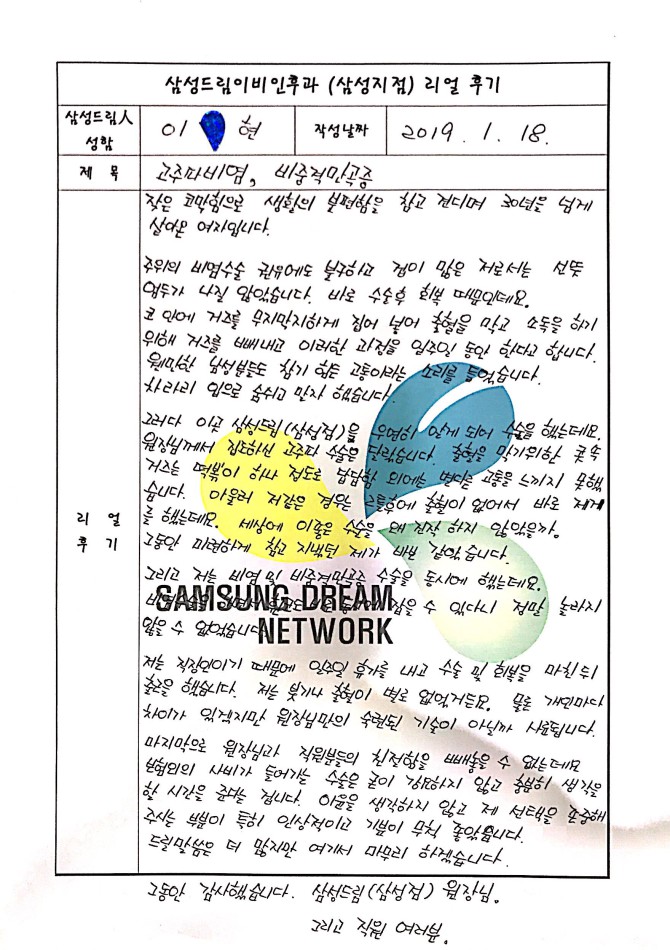 삼성드림이비인후과 (삼성지점) 리얼 후기
삼성드림人
성함
이 현
작성날짜
2019. 1. 18.
제 목
고주파비염, 비중격만곡증
리 얼
후 기
잦은 코막힘으로 생활의 불편함을 참고 견디며 30년을 넘게
살아온 여자입니다.
주위의 비염수술 권유에도 불구하고 겁이 많은 저로서는 선뜻
엄두가 나질 않았습니다. 바로 수술후 회복 때문인데요.
코 안에 거즈를 무지막지하게 집어 넣어 출혈을 막고 소독을 하기
위해 거즈를 빼내고 이러한 과정을 일주일 동안 한다고 합니다.
웬만한 남성분들도 참기 힘든 고통이라는 소리를 들었습니다.
차라리 입으로 숨쉬고 말자 했습니다.
그러다 이곳 삼성드림(삼성점)을 우연히 알게 되어 수술을 했는데요.
원장님께서 집도하신 고주파 수술은 달랐습니다. 출혈을 막기위한 콧속
거즈는 떡볶이 하나 정도로 답답함 외에는 별다른 고통을 느끼지 못했
습니다. 아울러 저같은 경우는 수술후에 출혈이 없어서 바로 제거
를 했는데요. 세상에 이좋은 수술을 왜 진작 하지 않았을까.
그동안 미련하게 참고 지냈던 제가 바보 같았습니다.
그리고 저는 비염 및 비중격만곡증 수술을 동시에 했는데요.
잡을 수 있다니 정말 놀라지
않을 수 없었습니다.
SAMSUNG DREAM
NETWORK
저는 직장인이기 때문에 일주일 휴가를 내고 수술 및 회복을 마친뒤
출근을 했습니다. 저는 붓기나 출혈이 별로 없었거든요. 물론 개인마다
차이가 있겠지만 원장님만의 숙련된 기술이 아닐까 사료됩니다.
마지막으로 원장님과 직원분들의 친절함을 빼놓을 수 없는데요
보험외의 사비가 들어가는 수술은 굳이 강요하지 않고 충분히 생각을
할 시간을 준다는 겁니다. 이윤을 생각하지 않고 제 선택을 존중해
주시는 부분이 특히 인상적이고 기분이 무척 좋았습니다.
드릴말씀은 더 많지만 여기서 마무리 하겠습니다.
그동안 감사했습니다. 삼성드림(삼성점) 원장님.
그리고 직원 여러분.